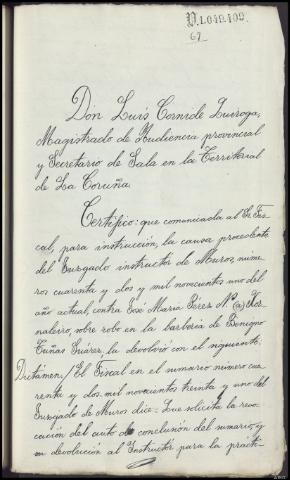 D.1.049.409
67
Don Luis Cornide Quiroga,
Magistrado de Audiencia provincial
y Secretario de Sala en la Territorial
de La Coruña.
Certifico: que comunicada al Sr. Fis-
cal, para instrucción, la causa procedente
del Juzgado instructor de Muros, nume-
ros cuarenta y dos y mil novecientos uno del
año actual, contra José María Pérez Nº (a) For-
naleiro, sobre robo en la barberia de Benigno
Tuñas Suárez, la devolvió con el siguiente:
Dictámen/ El Fiscal en el sumario número cua
renta y dos, mil novecientos treinta y uno del
Juzgado de Muros dice: Que solicita la revo-
cación del auto de conclusión del sumario, y
su devolución al Instructor para la practi-